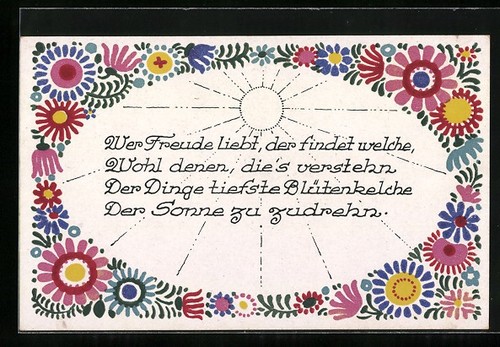 Wer Freude liebt, der findet welche,
Wohl denen, die's verstehn
Der Dinge tiefste Blütenkelche
Der Sonne zu zudrehn.